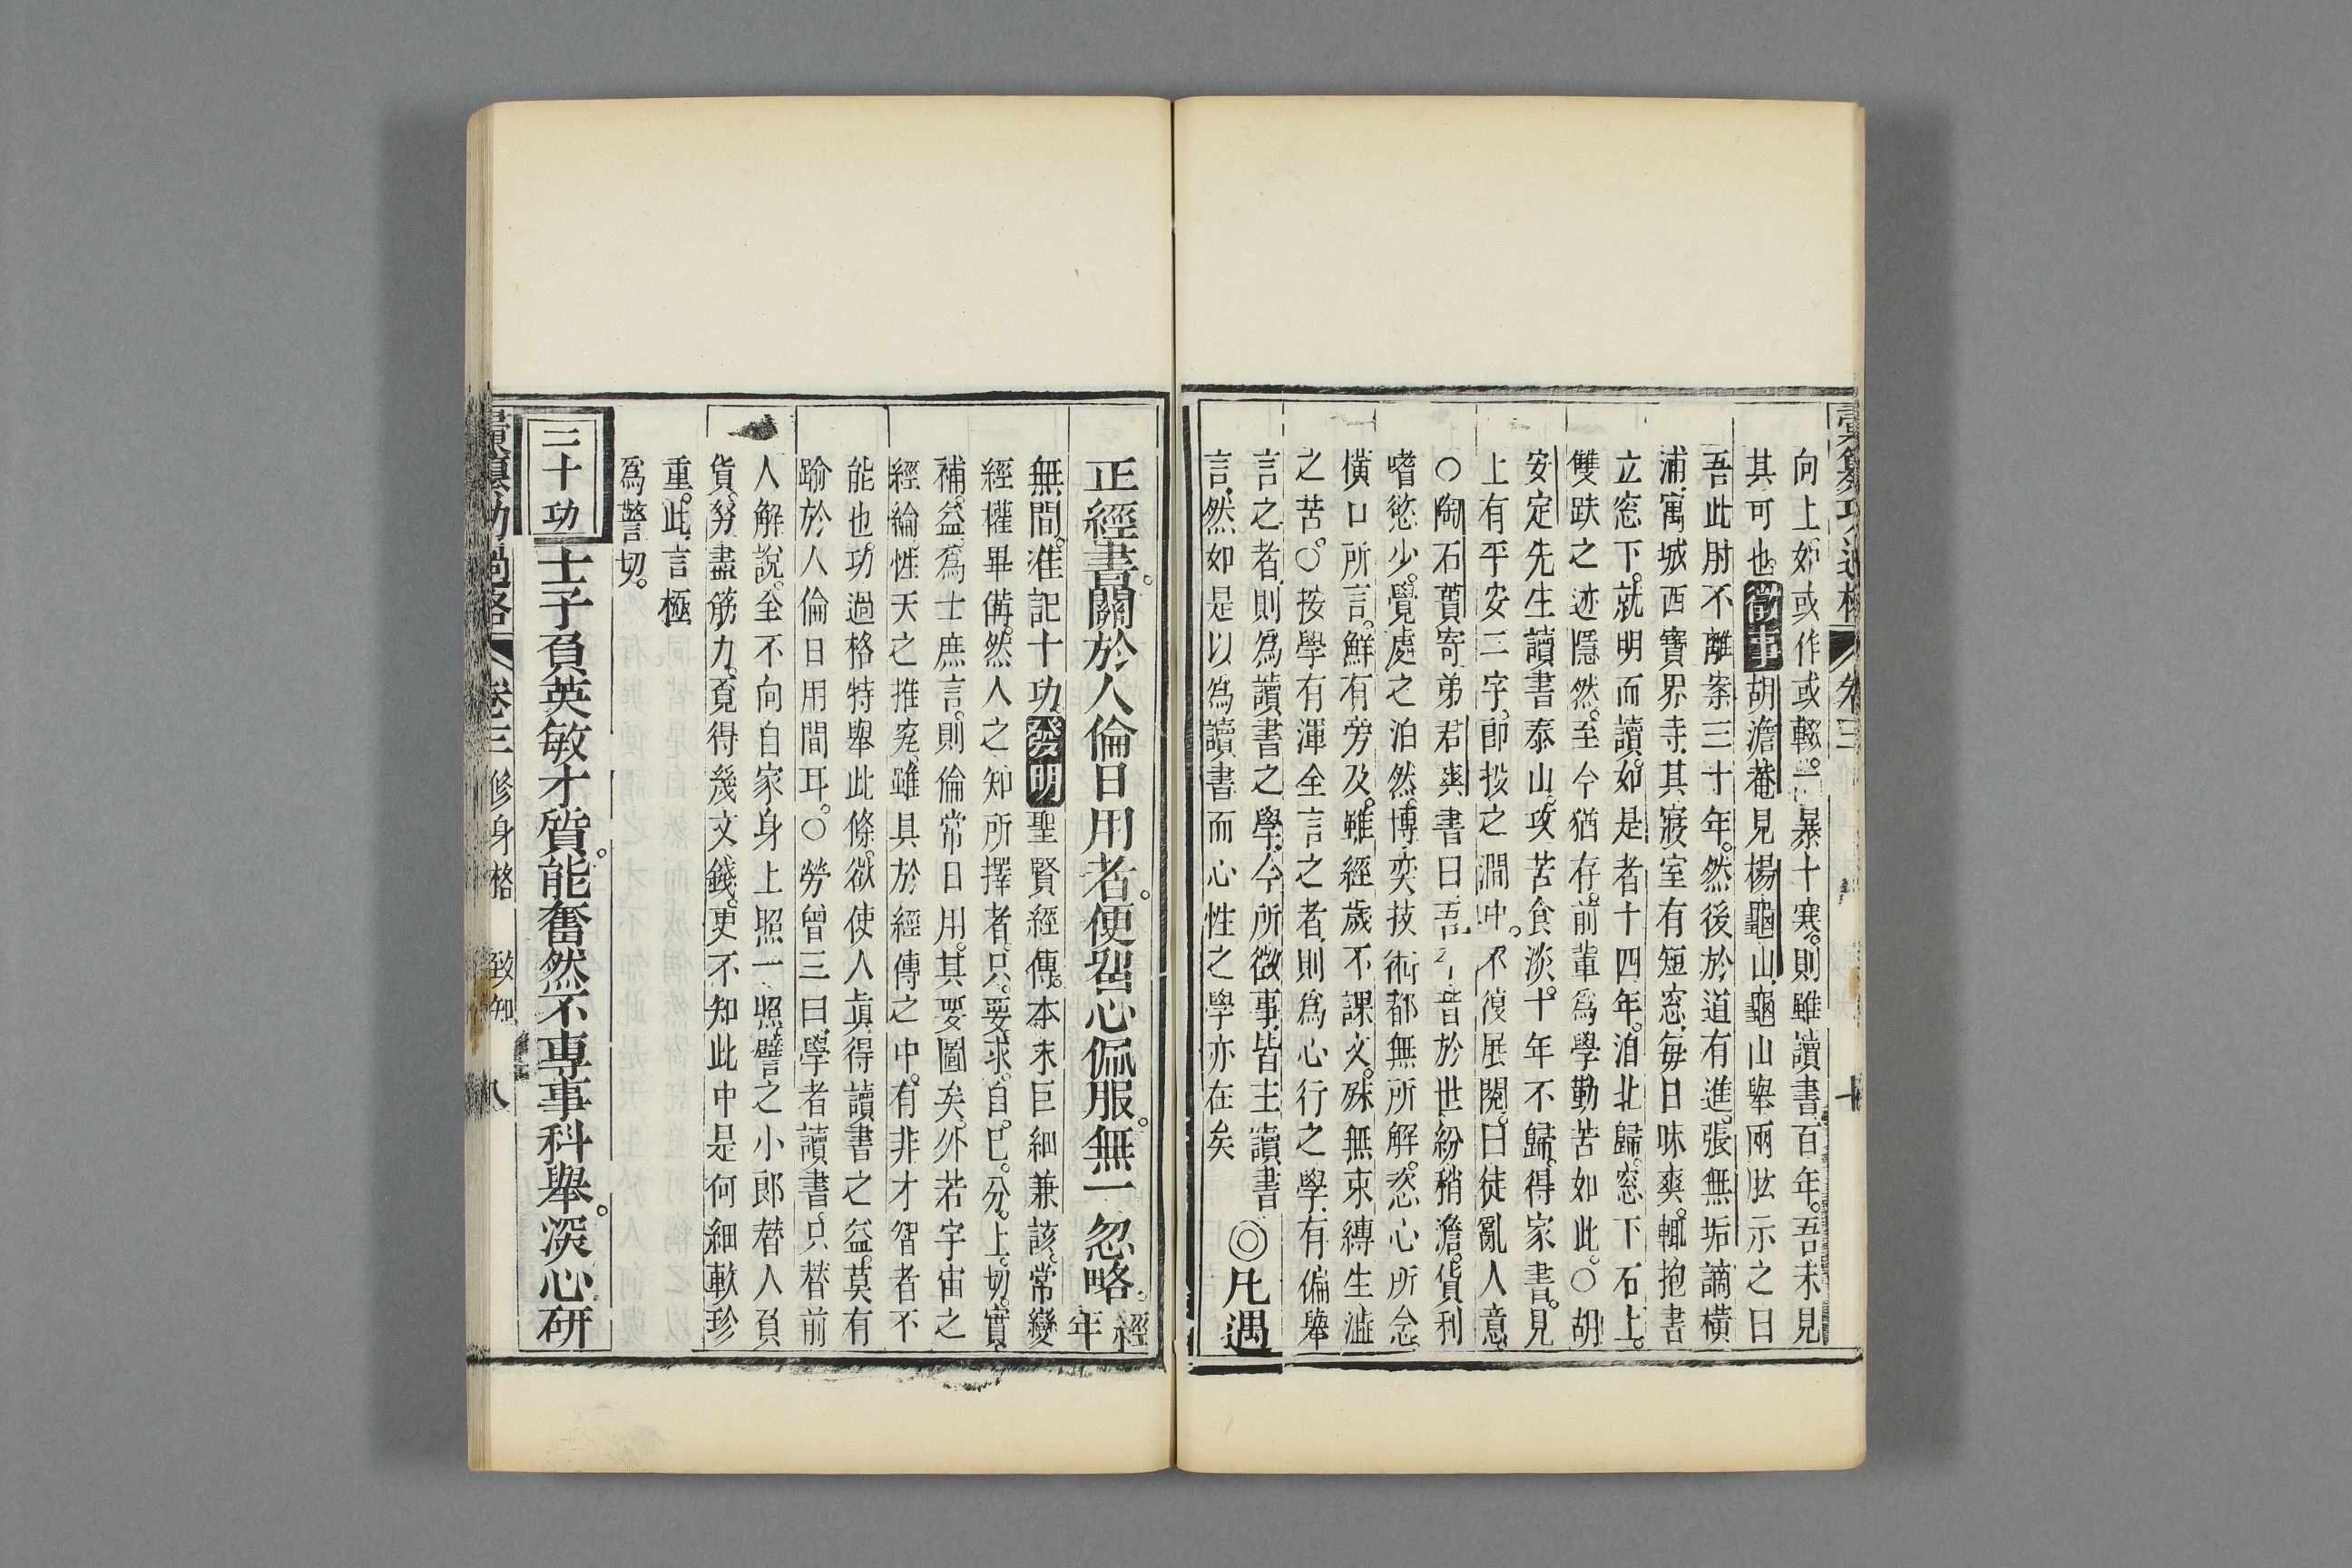 向上如或作或輟。一暴十寒。則雖讀書百年。吾未見
其可也。徵事胡澹菴見楊龜山。龜山舉兩肱示之曰
吾此肘不離案三十年。然後於道有進。張無垢謫橫
浦寓城西寶界寺。其寢室有短窓。每日昧爽。輒抱書
立窓下。就明而讀。如是者十四年。洎北歸。窓下石上。
雙趺之迹隱然。至今猶存。前輩為學勤苦如此。○胡
安定先生讀書泰山。攻苦食淡。十年不歸。得家書。見
上有平安二字。即投之澗中。不復展閱。曰徒亂人意。
○陶石簣寄弟君奭書曰吾昔於世紛稍澹。貨利
嗜慾少。覺處之泊然。博奕技術都無所解。恣心所念
橫口所言。鮮有旁及。雖經歲不課文。殊無束縛生澁
之苦。○按學有渾全言之者則為心行之學。有偏舉
言之者則為讀書之學。今所徵事。皆主讀書
言。然如是以為讀書而心性之學亦在矣
◎凡遇
正經書。關於人倫日用者。便留心佩服。無一忽略。經年
無間。准記十功發明聖賢經傳。本末巨細兼該。常變
經權畢備。然人之知所擇者。只要求自己分上切實
補益。為士庶言。則倫常日用。其要圖矣。外若宇宙之
經綸性天之推究。雖具於經傳之中。有非才智者不
能也。功過格特舉此條。欲使人眞得讀書之益。莫有
踰於人倫日用間耳。○勞曾三曰學者讀書。只替前
人解說。全不向自家身上照一照。譬之小郎替人負
貨。努盡筋力。覓得幾文錢。更不知此中是何細軟珍
重。此言極
為警切。
二十功
士子負英敏才質。能奮然不専事科舉。深心研
卷三 修身格 致知